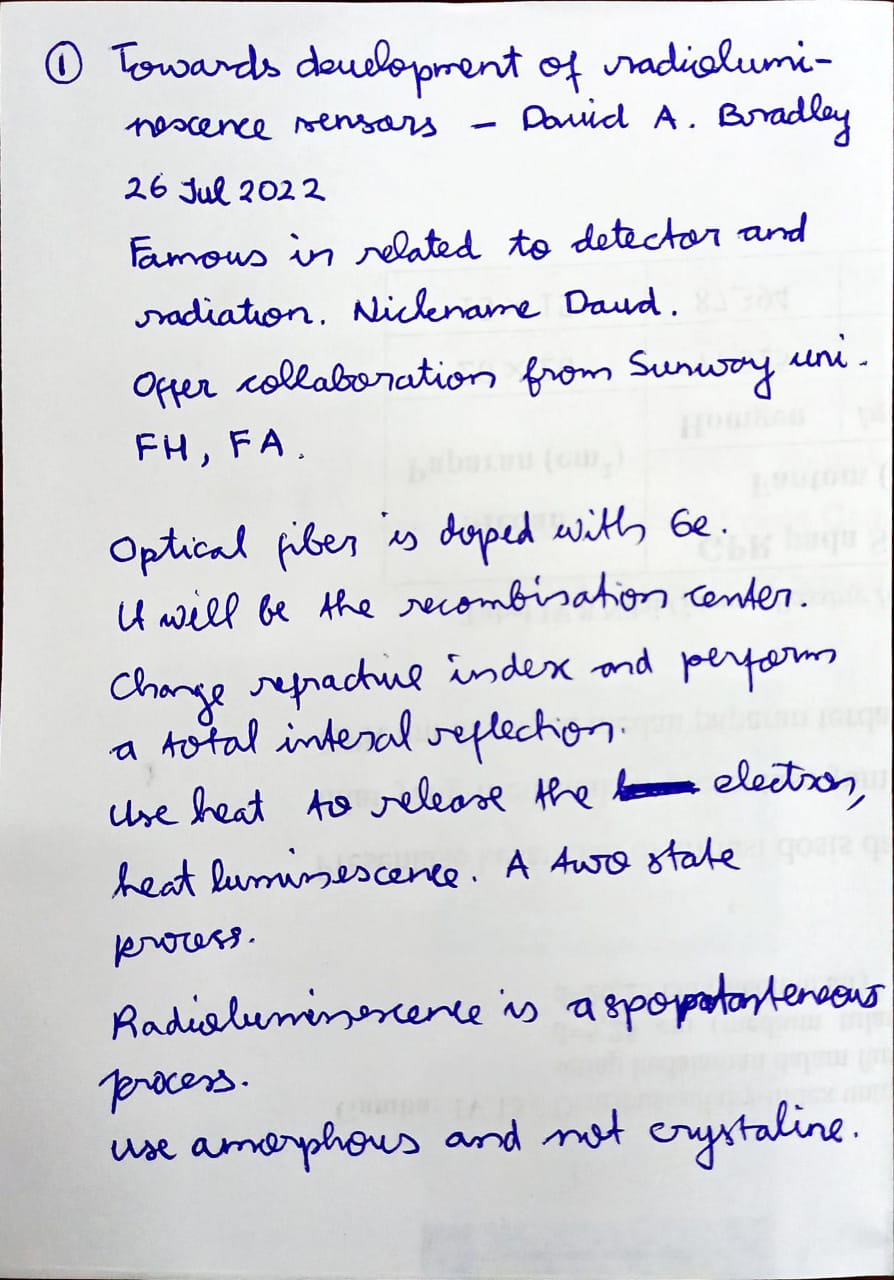 ① Towards development of radiolumi-
nescence sensors – David A. Bradley
26 Jul 2022
Famous in related to detector and
radiation. Nickname Daud.
Offer collaboration from Sunway uni.
FH, FA.
Optical fiber is doped with Ge.
It will be the recombination center.
Change refractive index and perform
a total interal reflection.
Use heat to release the electron,
heat luminescence. A two state
process.
Radioluminescence is a
process.
use amorphous and not crystaline.